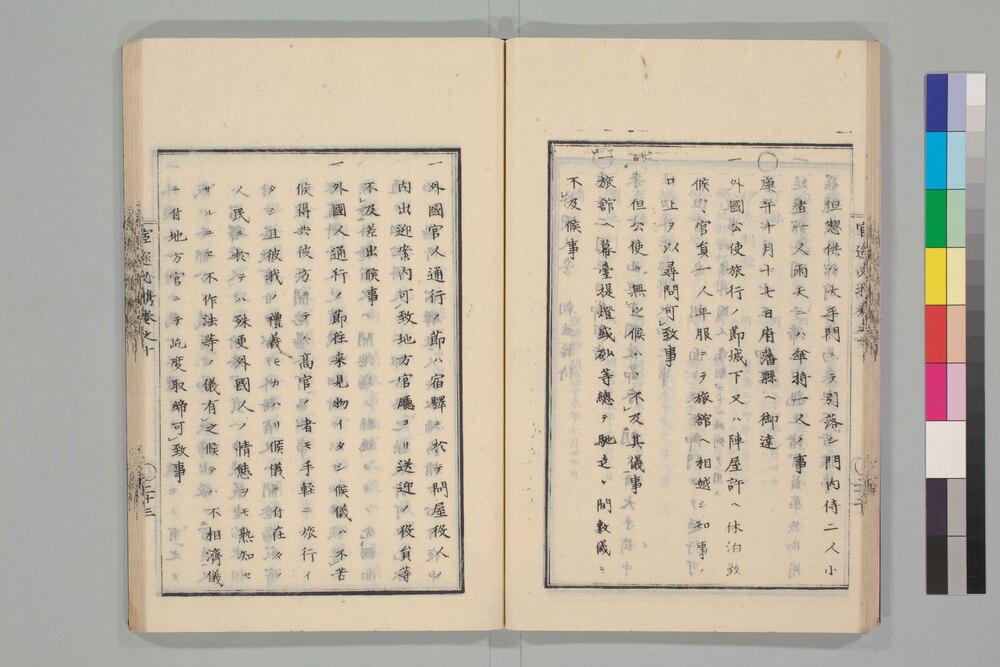 但惣供
大手門
ニテ引落シ門內侍二人小
者一人雨天ニハ傘持一人ノ事
庚午十月十七日府藩縣ヘ御達
一外國公使旅行ノ節城下又ハ陣屋許ヘ休泊致
候ハヽ官員一人平服ニテ旅舘ヘ相越シ知事ノ
口上ヲ以尋問可致事
但公使ニ無之候ハヽ不及其儀事
一旅舘ヘ幕臺提燈盛砂等總テ馳走ケ間敷儀ハ
不及候事
一外國官人通行ノ節ハ宿驛ニ於テ問屋役人
內出迎案內可致地方官廳ヨリ送迎ノ役員等
不及差出候事
一外國人通行ノ節往來見物イタシ候儀ハ不苦
候得共彼方ニテハ高官ノ者モ手輕ニ旅行イ
タシ且彼我ノ禮義モカハリ候儀ニ付在々ノ
人民ニ於テハ殊更外國人ノ情態ヲモ熟知セ
サルヨリ不作法等ノ儀有之候テハ不相濟儀
ニ付地方官ニテ屹度取締可致事
宣巡必携卷之十
二十三